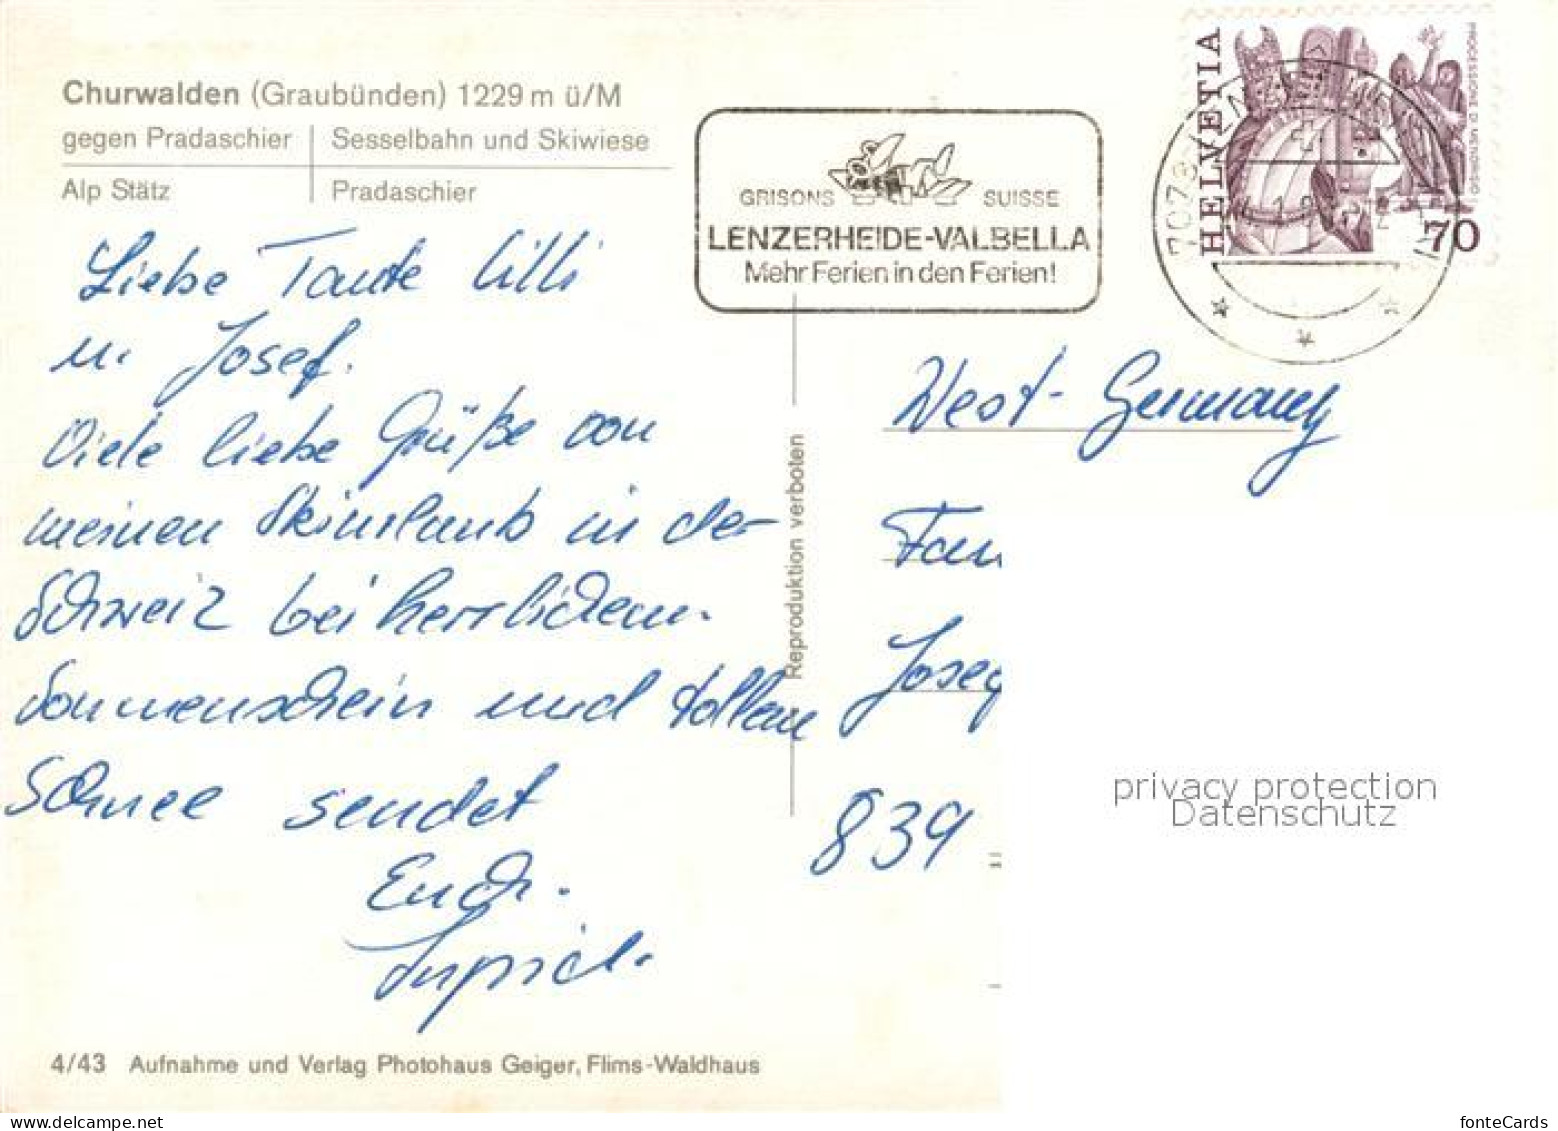 Churwalden (Graubünden) 1229 m ü/M
gegen Pradaschier Sesselbahn und Skiwiese
Alp Stätz Pradaschier
GRISONS SUISSE
LENZERHEIDE-VALBELLA
Mehr Ferien in den Ferien!
HELVETIA
PROCESSIONE DI MENDRISIO
70
7078
Liebe Tante Lilli
u. Josef.
Viele liebe Grüße von
meinen Skiurlaub in der
Schweiz bei herrlichem
Sonnenschein und tollem
Schnee sendet
Euch.
West-Germany
Fam
Josef
839
Reproduktion verboten
privacy protection
Datenschutz
4/43 Aufnahme und Verlag Photohaus Geiger, Flims-Waldhaus
www.delcampe.net
fonteCards